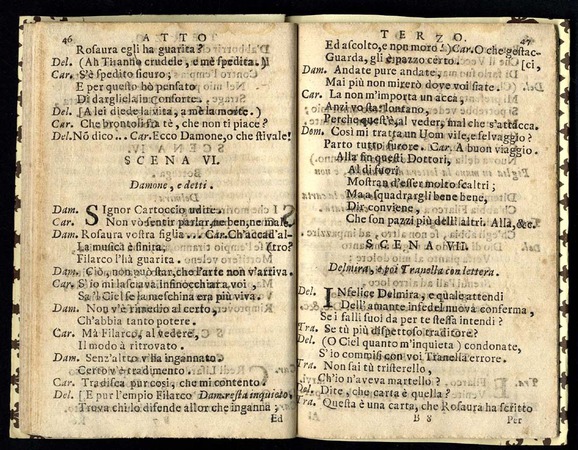 46 ATTO
Rosaura egli ha guarita?
Del. (Ah Tiranno crudele, e mè spedita.)]
Car. S'è spedito sicuro;
E per questo hò pensato
Di dargliela in consorte.
Del. [A lei diede la vita, a mè la morte.)
Car. Che brontoli frà tè, che non ti piace?
Del. Nò dico... Car. Ecco Damone, o che stivale!
SCENA VI.
Damone, e detti.
Dam. SIgnor Cartoccio udite.
Car. Non vò sentir parlar, ne ben, ne male.
Dam. Rosaura vostra figlia... Car. Ch'accad'al-
La musica è finita; (tro?
Filarco l'hà guarita.
Dam. Ciò, non può star, che l'arte non v'arriva.
Car. S'io mi lasciava infinocchiata voi,
Sa'l Ciel se la meschina era più viva.
Dam. Non v'è rimedio al certo,
Ch'abbia tanto potere.
Car. Mà Filarco, al vedere,
Il modo à ritrovato.
Dam. Senz'altro v'ha ingannato.
Certo v'è tradimento.
Car. Tradisca pur così, che mi contento.
Del. [E pur l'empio Filarco Dam. resta inquieto.
Trova chi lo difende allor che inganna;
Ed
TERZO. 47
Ed ascolto, e non moro!) Car. O che gestac-
Guarda, gli è pazzo certo. [ci,
Dam. Andate pure andate,
Mai più non mirerò dove voi siate.
Car. La non m'importa un acca,
Anzi vo star lontano,
Perche quest'è, al veder, mal che s'attacca.
Dam. Così mi tratta un Uom vile, e selvaggio?
Parto tutto furore. Car. A buon viaggio.
Alla fin questi Dottori,
Al di fuori
Mostran d'esser molto scaltri;
Ma a squadrargli bene bene,
Dir conviene,
Che son pazzi più dell'altri. Alla, &c.
SCENA VII.
Delmira, e poi Trapolla con lettera.
Del. INfelice Delmira, e quale attendi
Dell'amante infedel nuova conferma,
Se i falli suoi da per te stessa intendi?
Tra. Se tù più dispettoso traditore?
Del. (O Ciel quanto m'inquieta) condonate,
S'io commisi con voi Tranella errore.
Tra. Non sai tù tristerello,
Ch'io n'aveva martello?
Del. Dite, che carta è quella?
Tra. Questa è una carta, che Rosaura hà scritto
B 8 Per